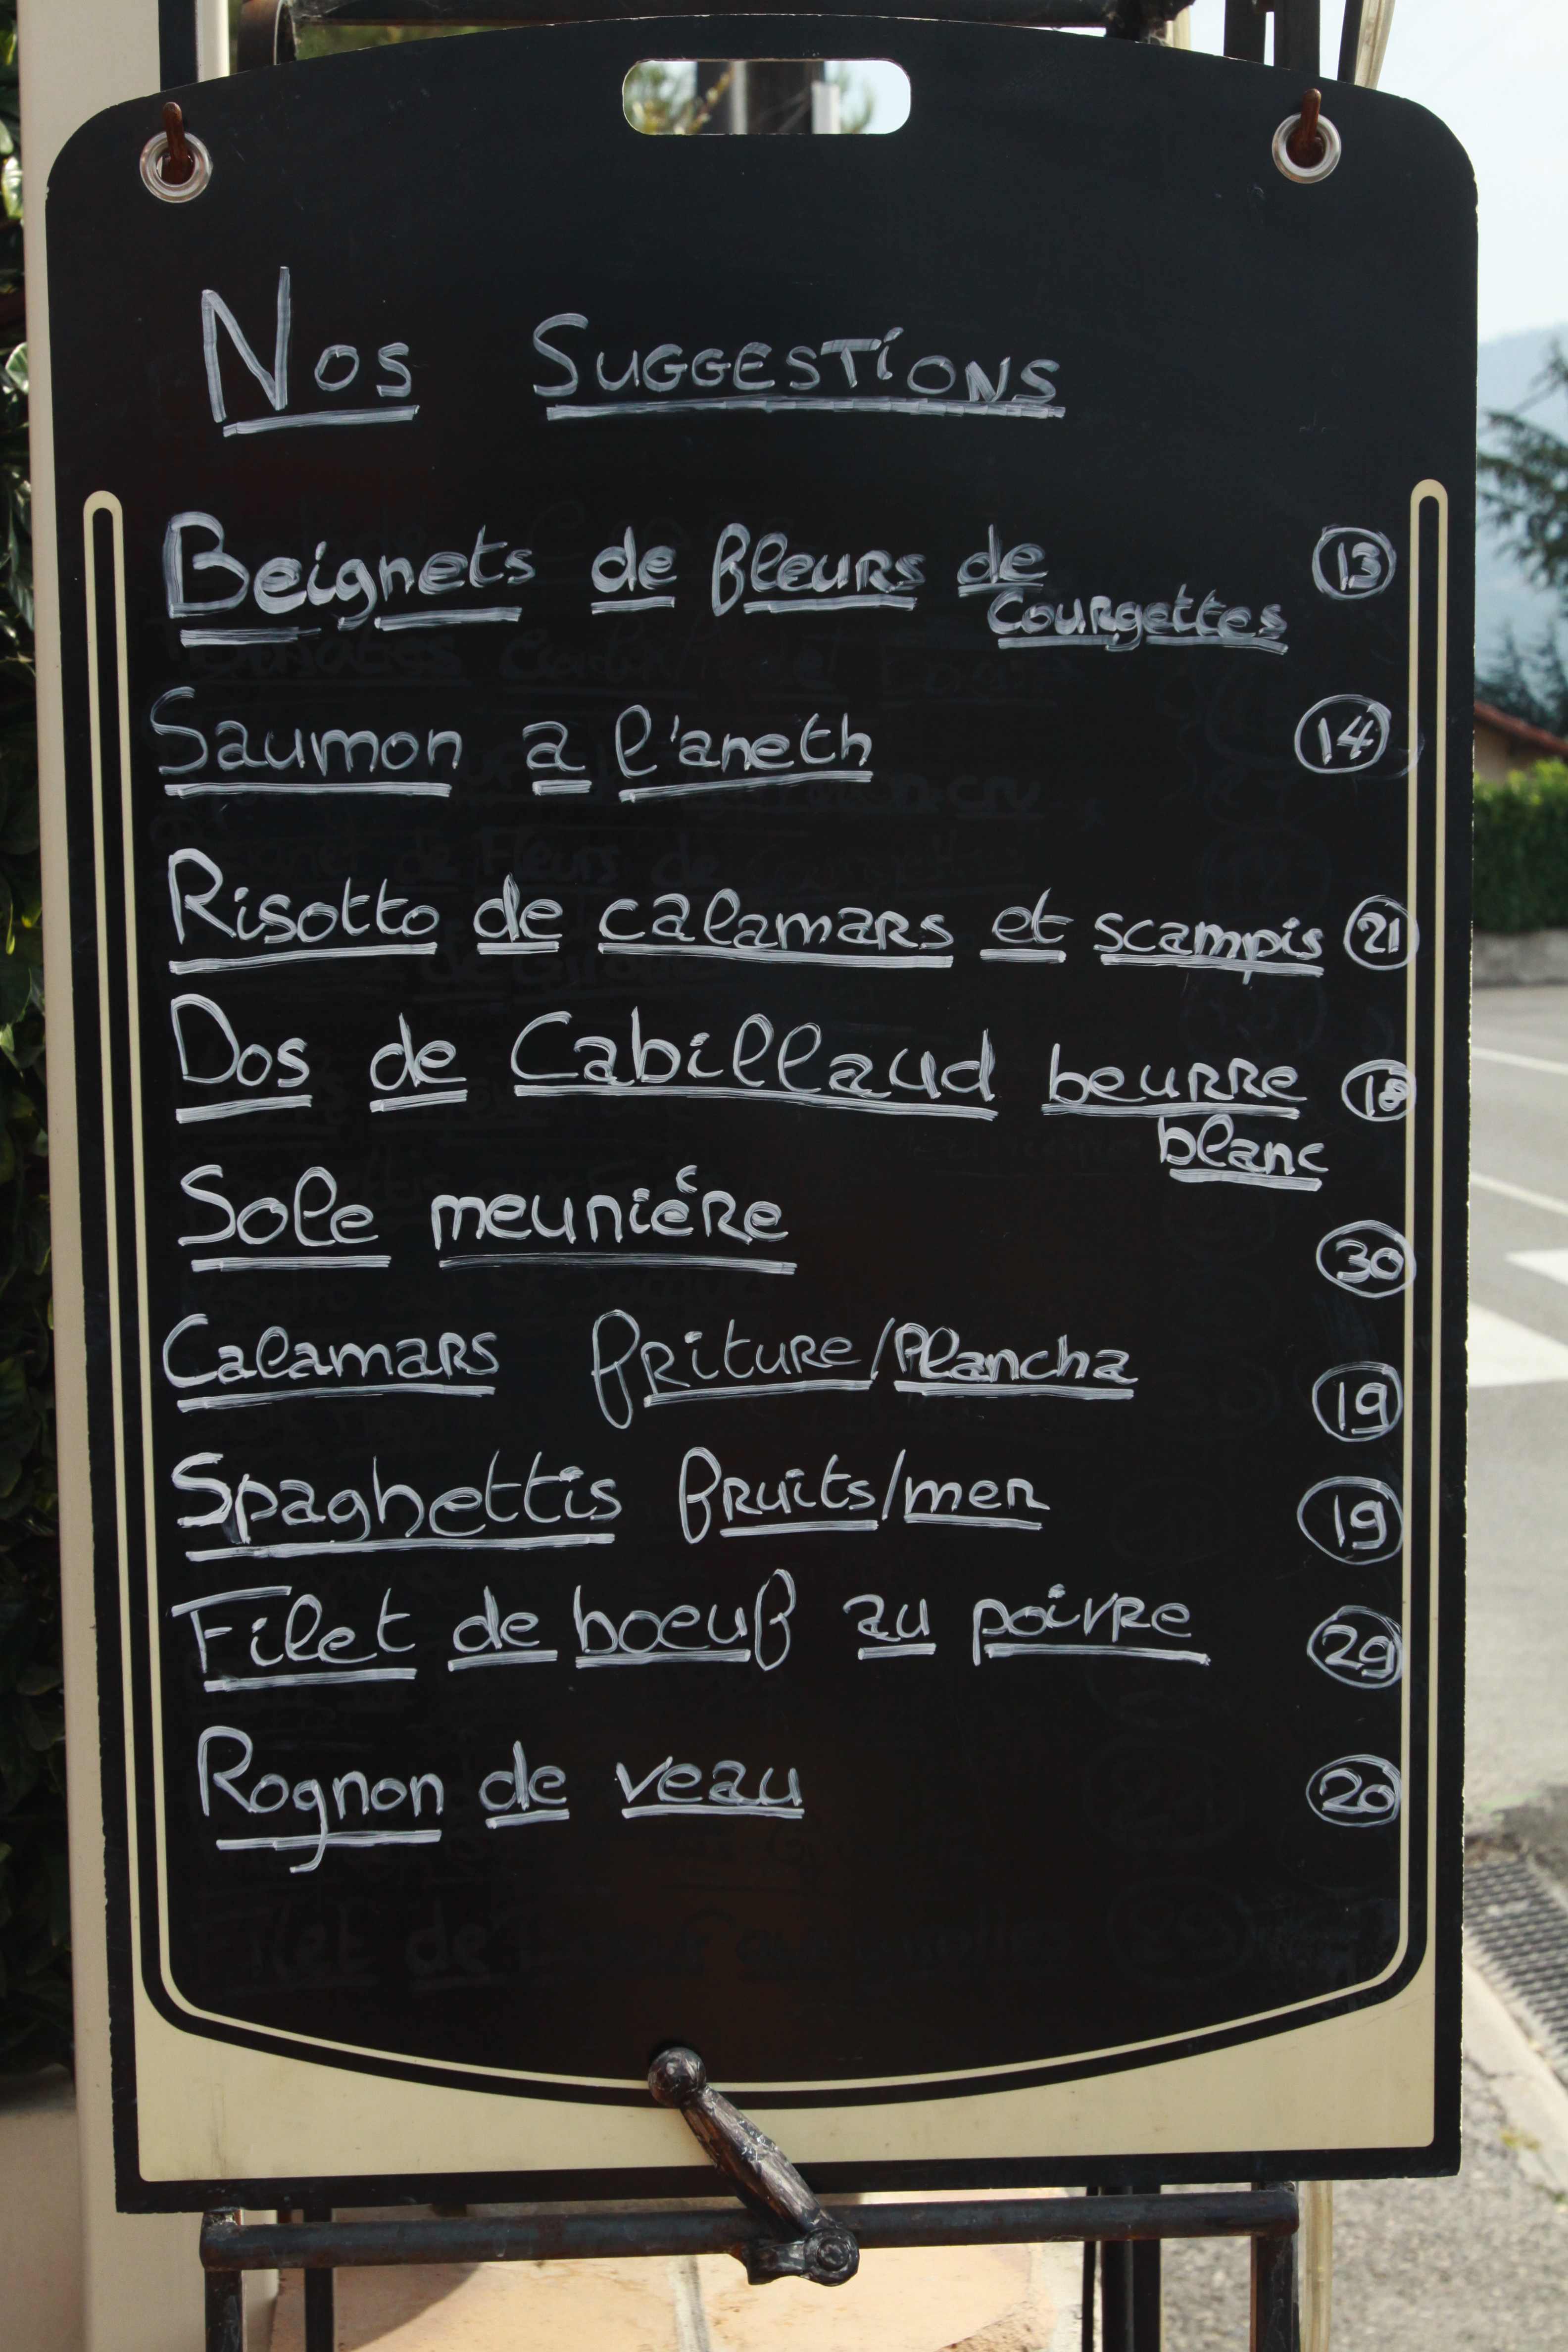 Nos Suggestions
Beignets de fleurs de 13
Courgettes
Saumon a l'aneth 14
Risotto de calamars et scampis 21
Dos de Cabillaud beurre 18
blanc
Sole meuniére 30
Calamars friture/Plancha 19
Spaghettis fruits/mer 19
Filet de boeuf au poivre 29
Rognon de veau 20